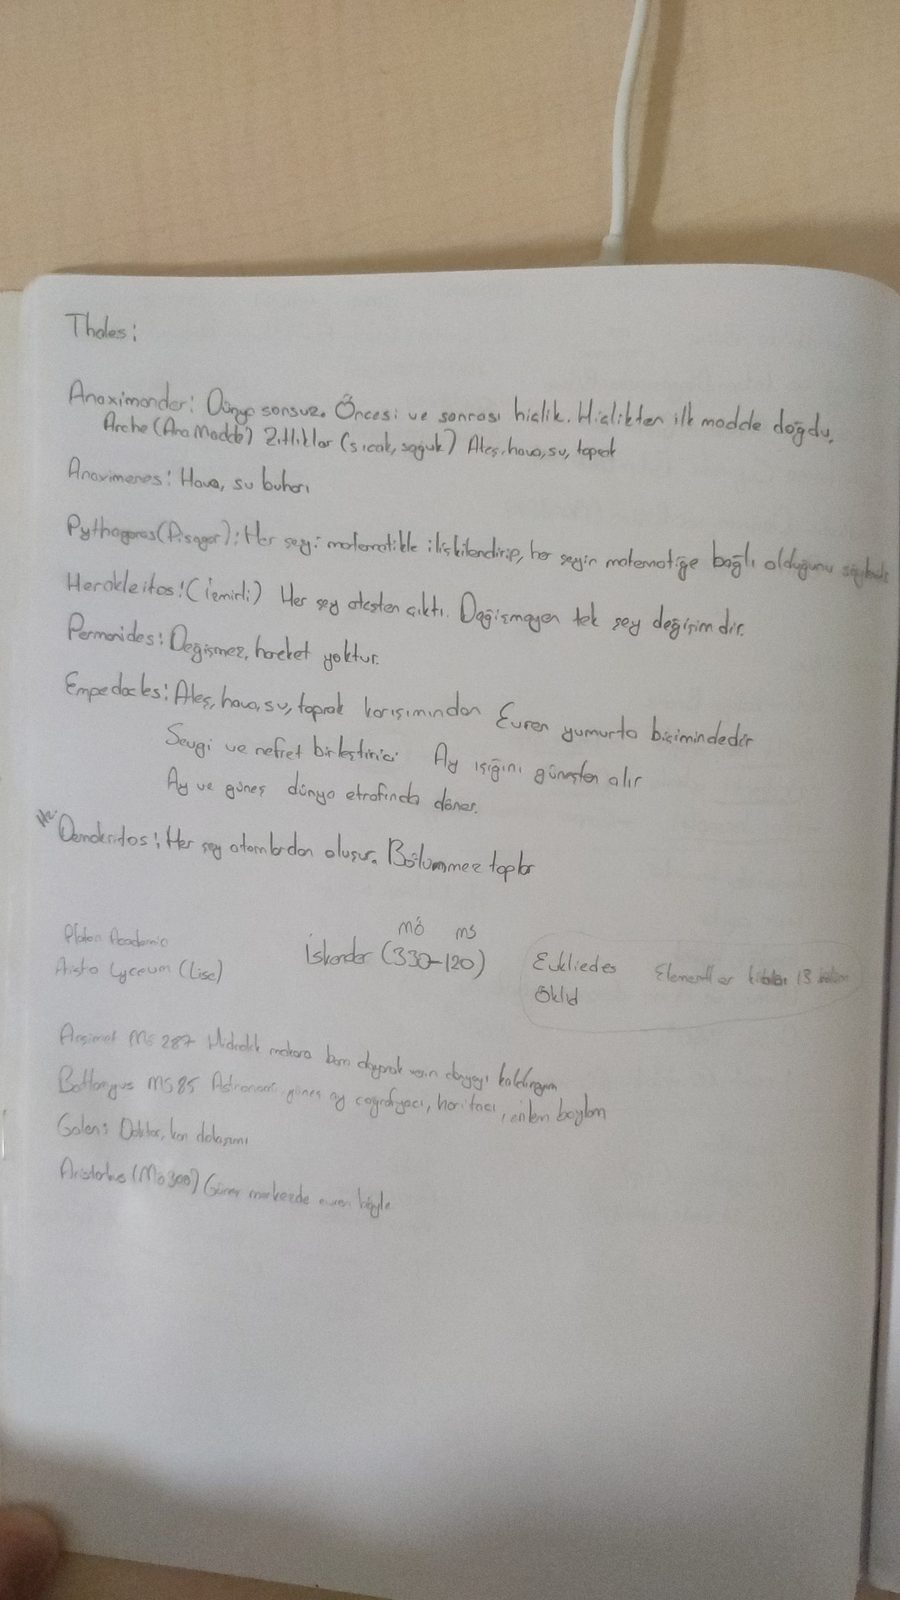 Thales:
Anaximander: Dünya sonsuz. Öncesi ve sonrası hiçlik. Hiçlikten ilk madde doğdu.
Arche (Ana Madde) Zıtlıklar (sıcak, soğuk) Ateş, hava, su, toprak
Anaximenes: Hava, su buharı
Pythagoras (Pisagor): Her şeyi matematikle ilişkilendirip, her şeyin matematiğe bağlı olduğunu
Herakleitos: (İzmirli) Her şey ateşten çıktı. Değişmeyen tek şey değişimdir.
Parmenides: Değişmez, hareket yoktur.
Empedocles: Ateş, hava, su, toprak karışımından Evren yumurta biçimindedir
Sevgi ve nefret birleştirici Ay ışığını güneşten alır
Ay ve güneş dünya etrafında döner.
Demokritos: Her şey atomlardan oluşur. Bölünmez toplar
Platon Academia
Aristo Lyceum (Lise)
MÖ MS
İskender (330-120)
Eukliedes
Öklid
Elementler kitabı 13 bölüm
Arşimet MÖ 287 Hidrolik makara bana dayanak verin dünyayı kaldırayım
Batlamyus MS 85 Astronomi güneş ay coğrafyacı, haritacı, enlem boylam
Galen: Doktor, kan dolaşımı
Aristarkus (MÖ 300) Güneş merkezde evren böyle